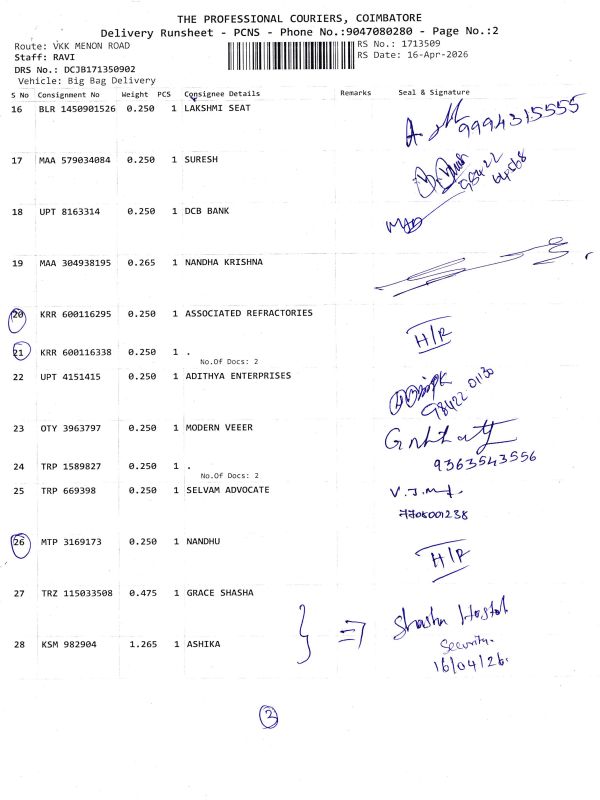 THE PROFESSIONAL COURIERS, COIMBATORE
Delivery Runsheet - PCNS - Phone No.:9047080280 - Page No.:2
Route: VKK MENON ROAD
RS No.: 1713509
Staff: RAVI
RS Date: 16-Apr-2026
DRS No.: DCJB171350902
Vehicle: Big Bag Delivery
S No Consignment No Weight PCS Consignee Details Remarks Seal & Signature
16 BLR 1450901526 0.250 1 LAKSHMI SEAT
9994315555
17 MAA 579034084 0.250 1 SURESH
98422
18 UPT 8163314 0.250 1 DCB BANK
19 MAA 304938195 0.265 1 NANDHA KRISHNA
20 KRR 600116295 0.250 1 ASSOCIATED REFRACTORIES
H/R
21 KRR 600116338 0.250 1 .
No.Of Docs: 2
22 UPT 4151415 0.250 1 ADITHYA ENTERPRISES
98422 01130
23 OTY 3963797 0.250 1 MODERN VEEER
9363543556
24 TRP 1589827 0.250 1 .
No.Of Docs: 2
25 TRP 669398 0.250 1 SELVAM ADVOCATE
26 MTP 3169173 0.250 1 NANDHU
H/R
27 TRZ 115033508 0.475 1 GRACE SHASHA
Shasha Hostel
28 KSM 982904 1.265 1 ASHIKA
Security.
16/04/26.
3